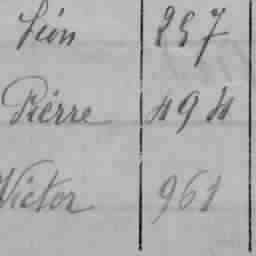 Léon 257
Piérre 494
Victor 961